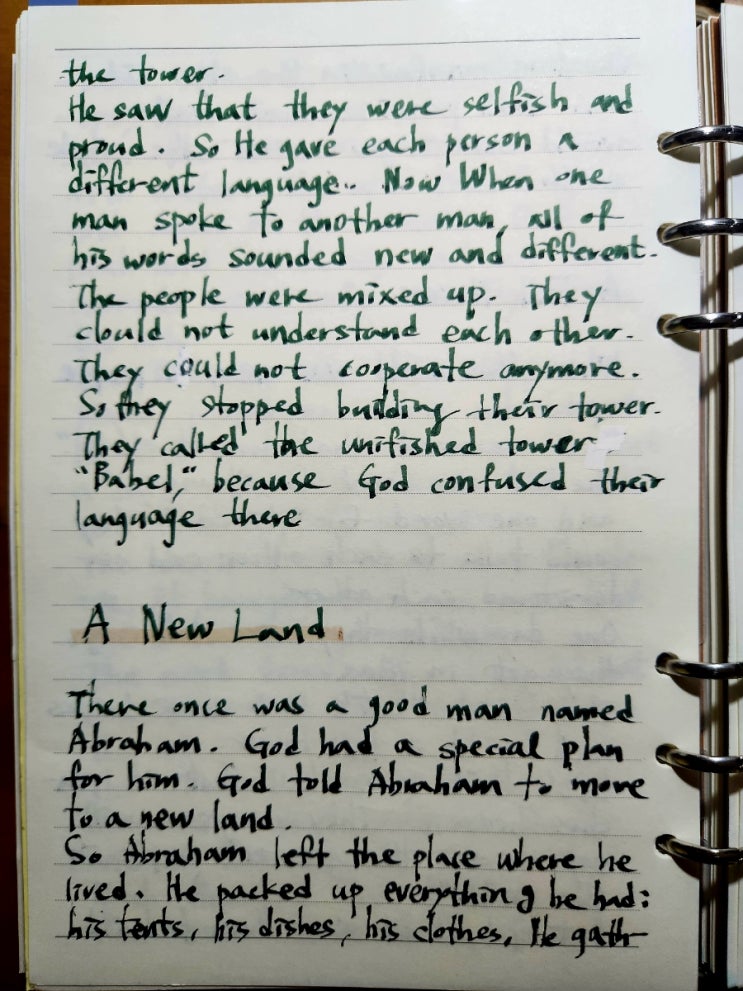 the tower.
He saw that they were selfish and
proud. So He gave each person a
different language.. Now When one
man spoke to another man, all of
his words sounded new and different.
The people were mixed up. They
clould not understand each other.
They could not cooperate anymore.
So they stopped building their tower.
They called the unifished tower
"Babel," because God confused their
language there
A New Land
There once was a good man named
Abraham. God had a special plan
for him. God told Abraham to move
to a new land.
So Abraham left the place where he
lived. He packed up everything he had:
his tents, his dishes, his clothes, He gath-